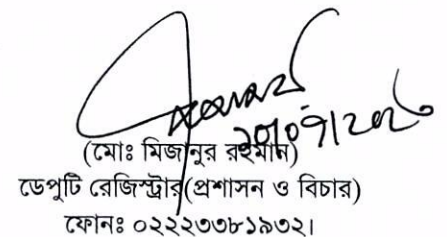 (মোঃ মিজানুর রহমান)
ডেপুটি রেজিস্ট্রার(প্রশাসন ও বিচার)
ফোনঃ ০২২২৩৩৮১৯৩২।